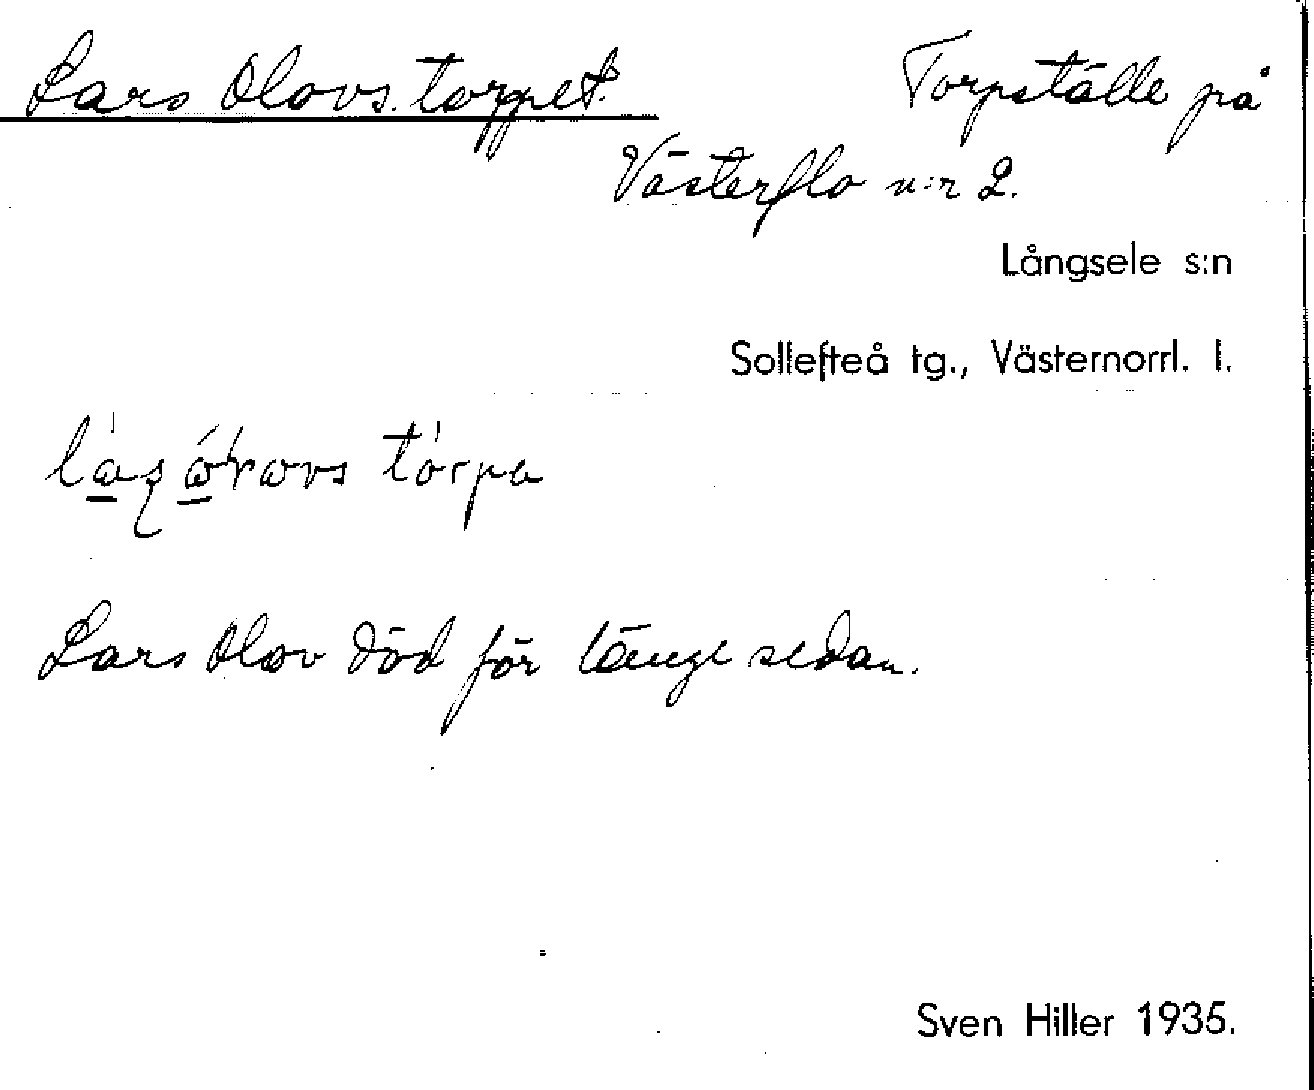 Lars Olovs. torpet. Torpställe på
Västerflo n:r 2.
Långsele s:n
Sollefteå tg., Västernorrl. l.
Lars Olov död för länge sedan.
Sven Hiller 1935.